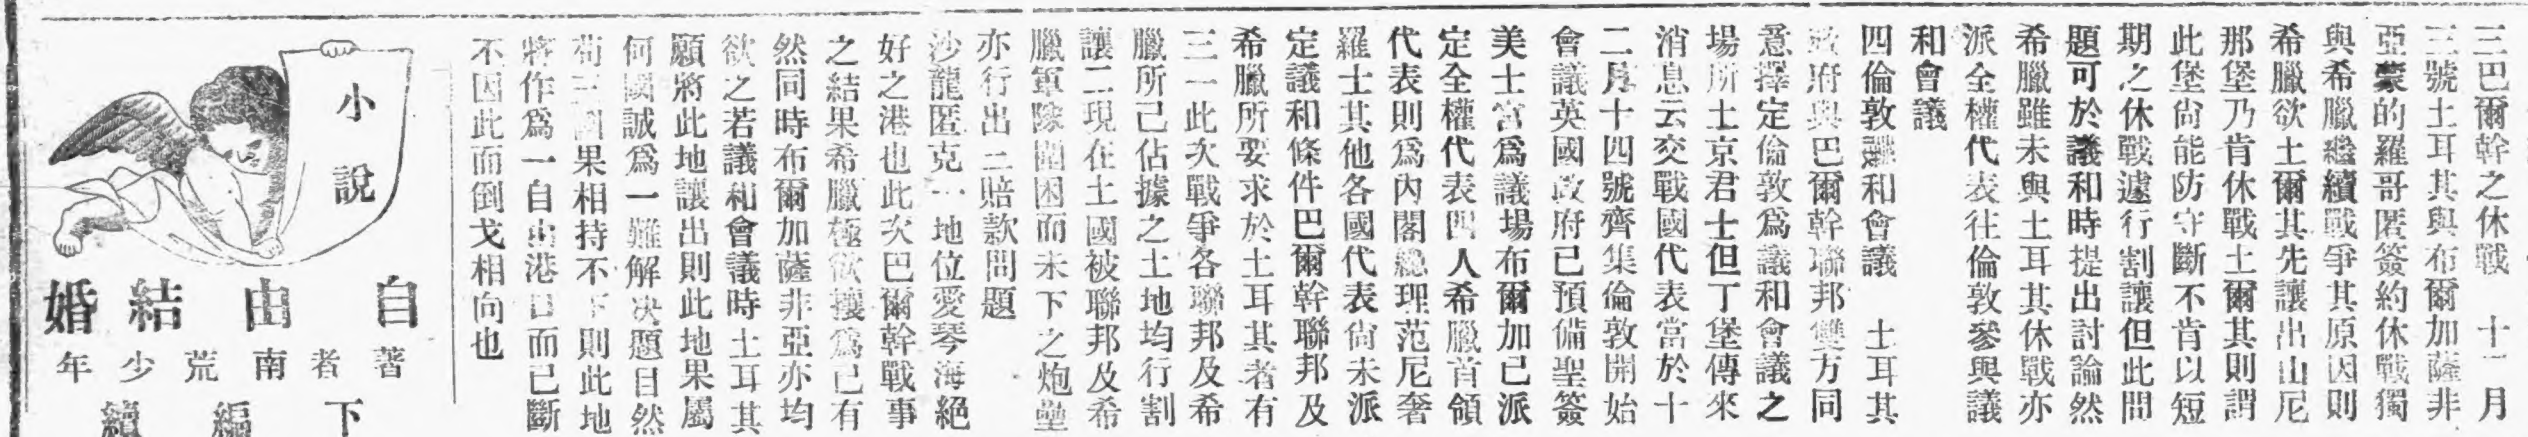 三巴爾幹之休戰　十二月
三號土耳其與布爾加薩非
亞蒙的羅哥匿簽約休戰獨
與希臘繼續戰爭其原因則
希臘欲土爾其先讓出山尼
那堡乃肯休戰土爾其則謂
此堡尙能防守斷不肯以短
期之休戰遽行割讓但此問
題可於議和時提出討論然
希臘雖未與土耳其休戰亦
派全權代表往倫敦參與議
和會議
四倫敦議和會議　土耳其
政府與巴爾幹聯邦雙方同
意擇定倫敦爲議和會議之
場所土京君士但丁堡傳來
消息云交戰國代表當於十
二月十四號齊集倫敦開始
會議英國政府已預備聖簽
美士宮爲議場布爾加已派
定全權代表四人希臘首領
代表則爲內閣總理范尼奢
羅士其他各國代表尙未派
定議和條件巴爾幹聯邦及
希臘所要求於土耳其者有
三一此次戰爭各聯邦及希
臘所已佔據之土地均行割
讓二現在土國被聯邦及希
臘軍隊圍困而未下之炮壘
亦行出三賠款問題
沙龍匿克一地位愛琴海絕
好之港也此次巴爾幹戰事
之結果希臘極欲攘爲己有
然同時布爾加薩非亞亦均
欲之若議和會議時土耳其
願將此地讓出則此地果屬
何國誠爲一難解决題目然
苟三國果相持不下則此地
將作爲一自由港口而已斷
不因此而倒戈相向也
小說
自由結婚
著者南荒少年
下編續